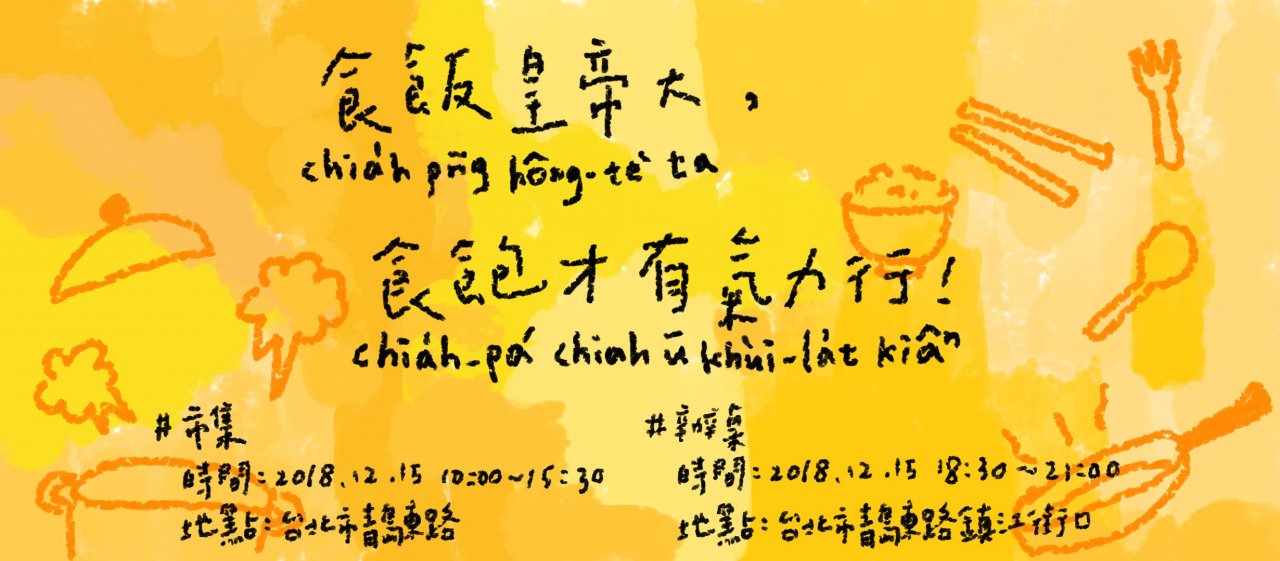 食飯皇帝大，
chia̍h pn̄g hông-tè ta
食飽才有氣力行！
chia̍h-pá chiah ū khùi-la̍t kiâⁿ
#市集
時間：2018.12.15 10:00~15:30
地點：台北市青島東路
#辦桌
時間：2018.12.15 18:30~21:00
地點：台北市青島東路鎮江街口